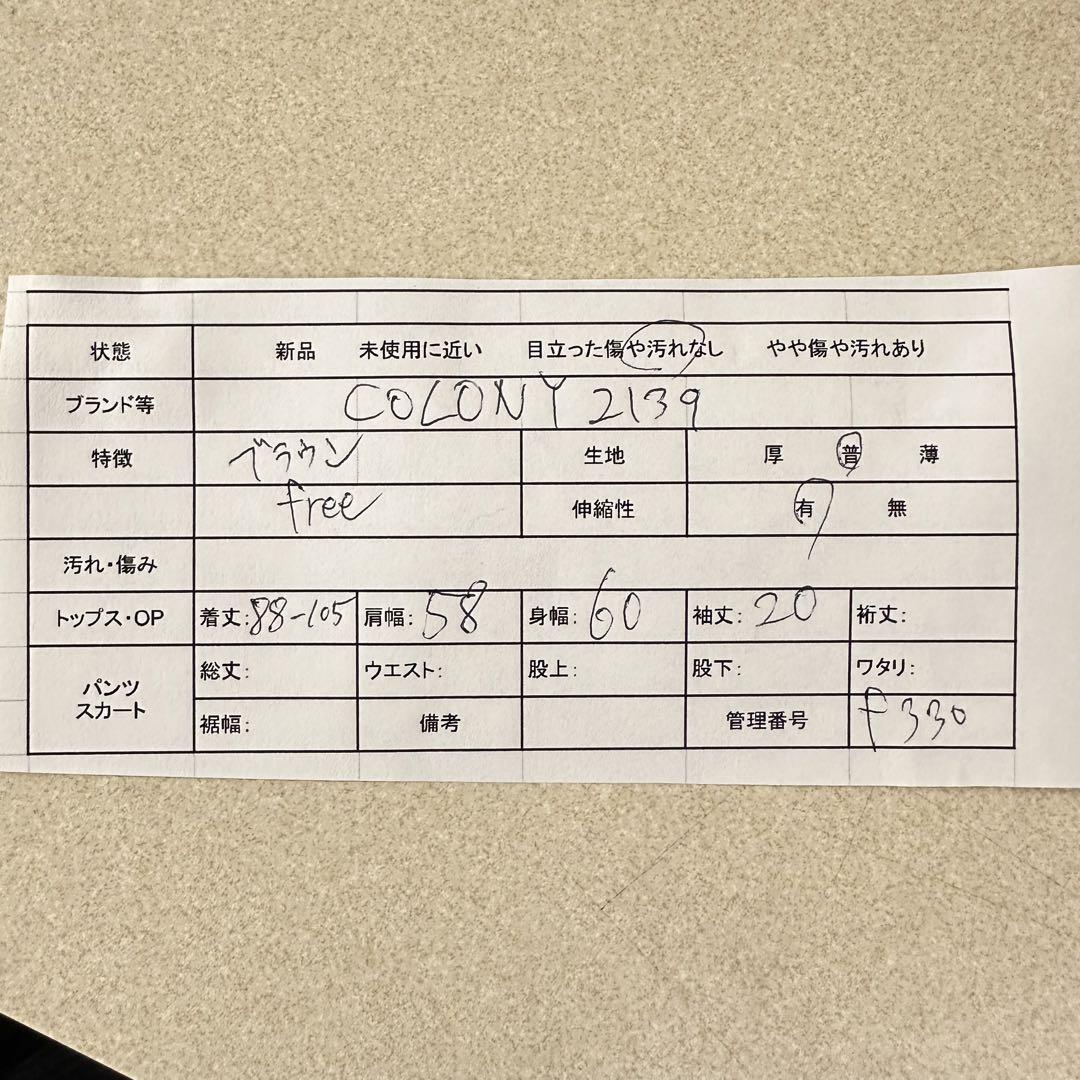 状態 新品 未使用に近い 目立った傷や汚れなし やや傷や汚れあり
ブランド等 COLONY 2139
特徴 ブラウン 生地 厚 普 薄
free 伸縮性 有 無
汚れ・傷み
トップス・OP 着丈:88-105 肩幅:58 身幅:60 袖丈:20 裄丈:
パンツ スカート 総丈: ウエスト: 股上: 股下: ワタリ:
裾幅: 備考 管理番号 f330